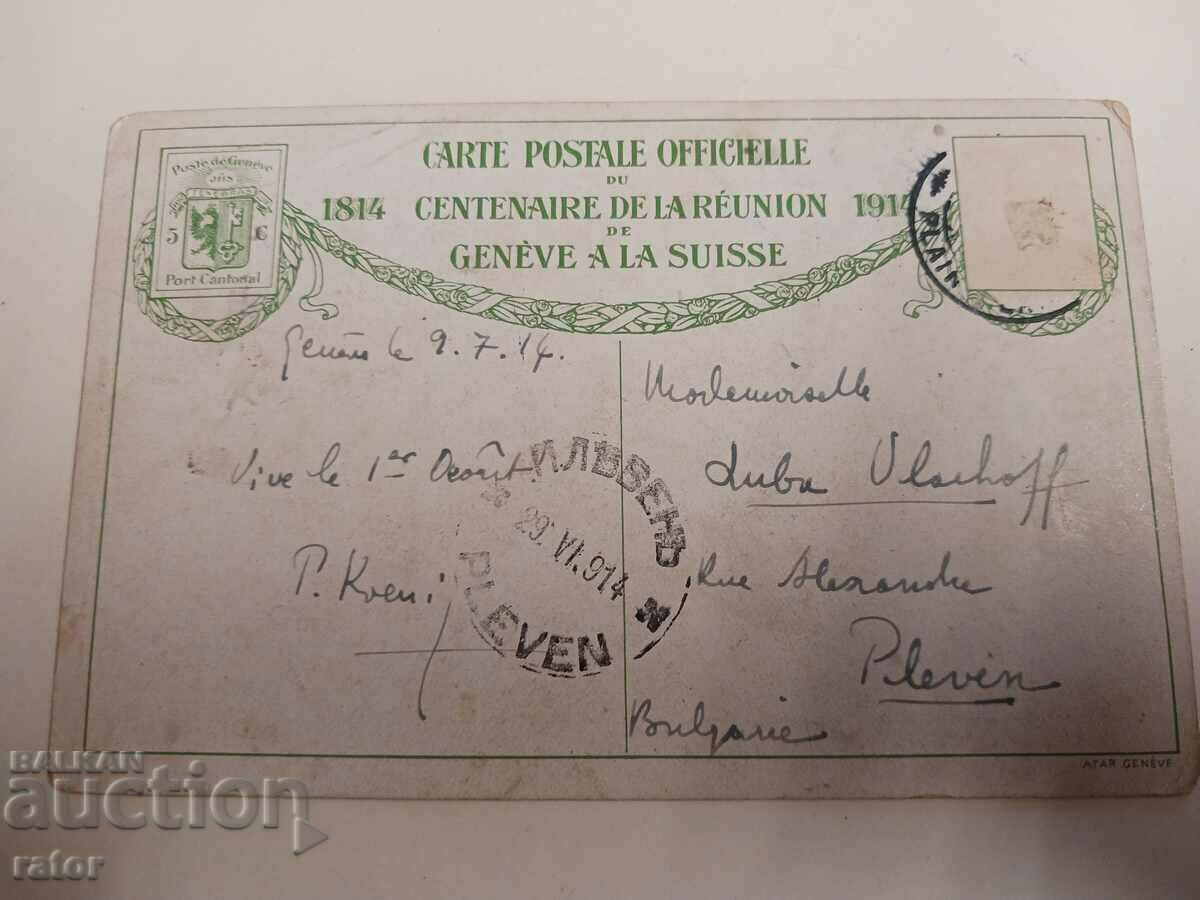 CARTE POSTALE OFFICIELLE
DU
1814 CENTENAIRE DE LA RÉUNION 1914
DE
GENÈVE A LA SUISSE
Poste de Genève
5 C
Port Cantonal
PLAIN
Genève le 9.7.14.
Vive le 1er Août
P. Koenig
ПЛѢВЕНЪ
29.VI.914
PLEVEN
Mademoiselle
Luba Vlachoff
Rue Alexandre
Pleven
Bulgarie
ATAR GENÈVE
BALKAN
auction
rator